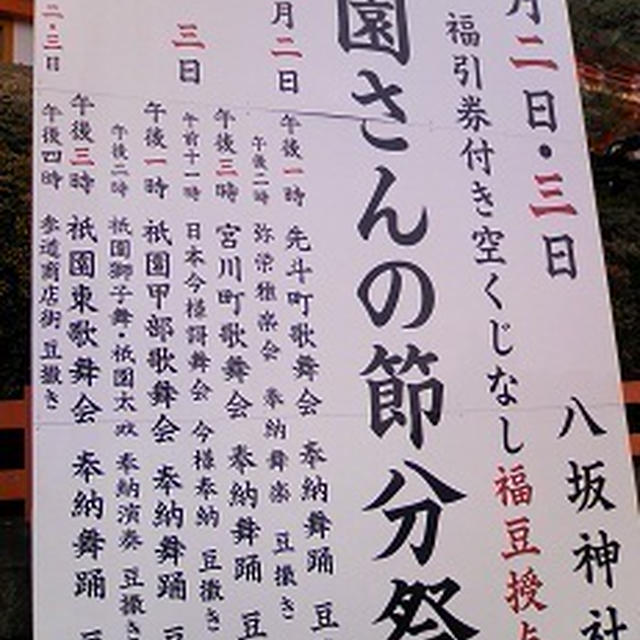 月二日・三日
八坂神社
福引券付き空くじなし福豆授与
園さんの節分祭
月二日
午後一時 先斗町歌舞会 奉納舞踊 豆
午後二時 弥栄雅楽会 奉納舞楽 豆撒き
午後三時 宮川町歌舞会 奉納舞踊 豆
三日
午前十一時 日本今様謌舞会 今様奉納 豆撒き
午後一時 祇園甲部歌舞会 奉納舞踊 豆
午後二時 祇園獅子舞・祇園太鼓 奉納演奏 豆撒き
午後三時 祇園東歌舞会 奉納舞踊 豆
二・三日
午後四時 参道商店街 豆撒き